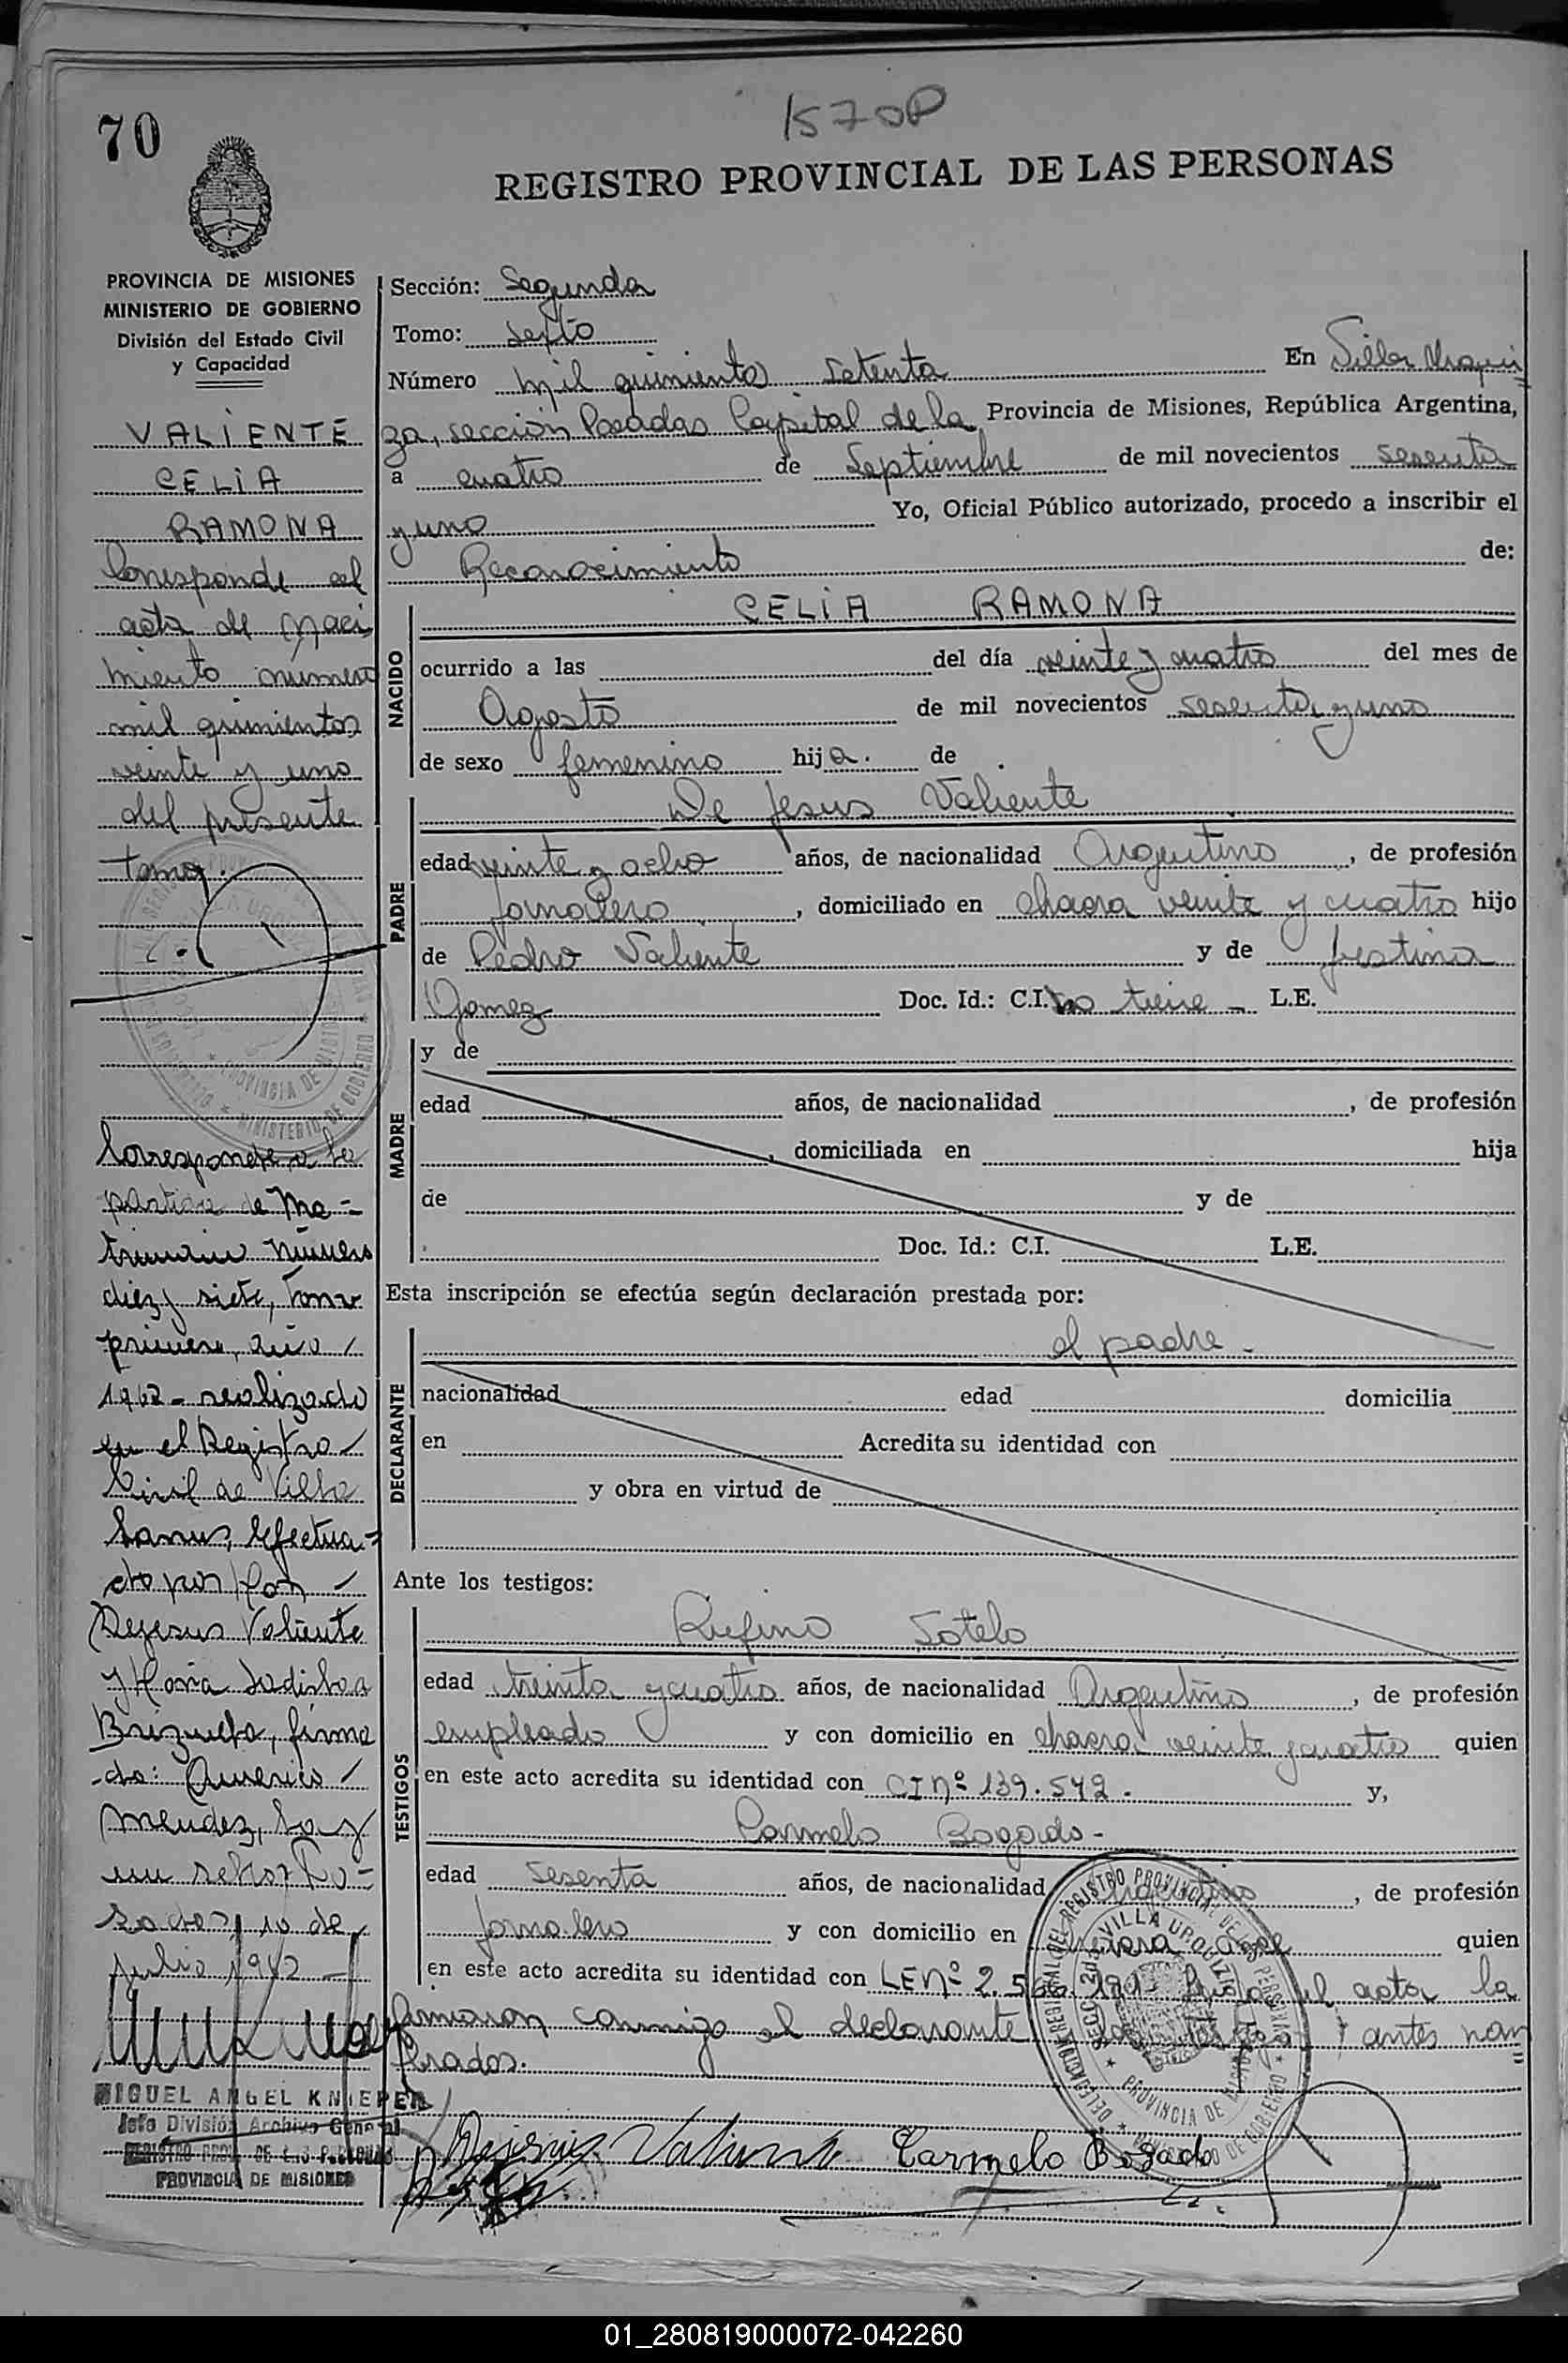 70
1570P
REGISTRO PROVINCIAL DE LAS PERSONAS
PROVINCIA DE MISIONES
MINISTERIO DE GOBIERNO
División del Estado Civil
y Capacidad
VALIENTE
CELIA
RAMONA
Corresponde al
acta de naci
miento número
mil quinientos
veinte y uno
del presente
tomo.
Corresponde a la
partida de Ma-
trimonio número
diez y siete, tomo
primero, año
1962 - realizado
en el Registro
Civil de Villa
Lanus, efectua-
do por Don
Dejesus Valiente
y Maria Ladislaa
Brizuela, firma
do: Americo
Mendez, Hay
un sello: Po-
sadas, 10 de
Julio 1962
MIGUEL ANGEL KNIEPER
Jefe División Archivo General
REGISTRO PROV. DE LAS PERSONAS
PROVINCIA DE MISIONES
Sección: Segunda
Tomo: Sexto
Número mil quinientos setenta En Villa Urqui
za, sección Posadas Capital de la Provincia de Misiones, República Argentina,
a cuatro de Septiembre de mil novecientos sesenta
y uno Yo, Oficial Público autorizado, procedo a inscribir el
Reconocimiento de:
NACIDO
CELIA RAMONA
ocurrido a las del día veinte y cuatro del mes de
Agosto de mil novecientos sesenta y uno
de sexo femenino hija. de
PADRE
De Jesus Valiente
edad veinte y ocho años, de nacionalidad Argentino, de profesión
Jornalero, domiciliado en chacra veinte y cuatro hijo
de Pedro Valiente y de Justina
Gomez Doc. Id.: C.I. no tiene - L.E.
MADRE
y de
edad años, de nacionalidad , de profesión
, domiciliada en hija
de y de
Doc. Id.: C.I. L.E.
Esta inscripción se efectúa según declaración prestada por:
DECLARANTE
el padre -
nacionalidad edad domicilia
en Acredita su identidad con
y obra en virtud de
Ante los testigos:
TESTIGOS
Rufino Sotelo
edad treinta y cuatro años, de nacionalidad Argentino, de profesión
empleado y con domicilio en chacra veinte y cuatro quien
en este acto acredita su identidad con CI nº 139.542. y,
Carmelo Bogado -
edad sesenta años, de nacionalidad Argentino, de profesión
Jornalero y con domicilio en quien
en este acto acredita su identidad con LE nº 2.566. el acta la
firmaron conmigo el declarante antes nom
brados.
Dejesus Valiente Carmelo Bogado
DELEGACION REGIONAL DEL REGISTRO PROVINCIAL DE LAS PERSONAS
SECC. 2da. VILLA URQUIZA
PROVINCIA DE MISIONES
MINISTERIO DE GOBIERNO
01_280819000072-042260